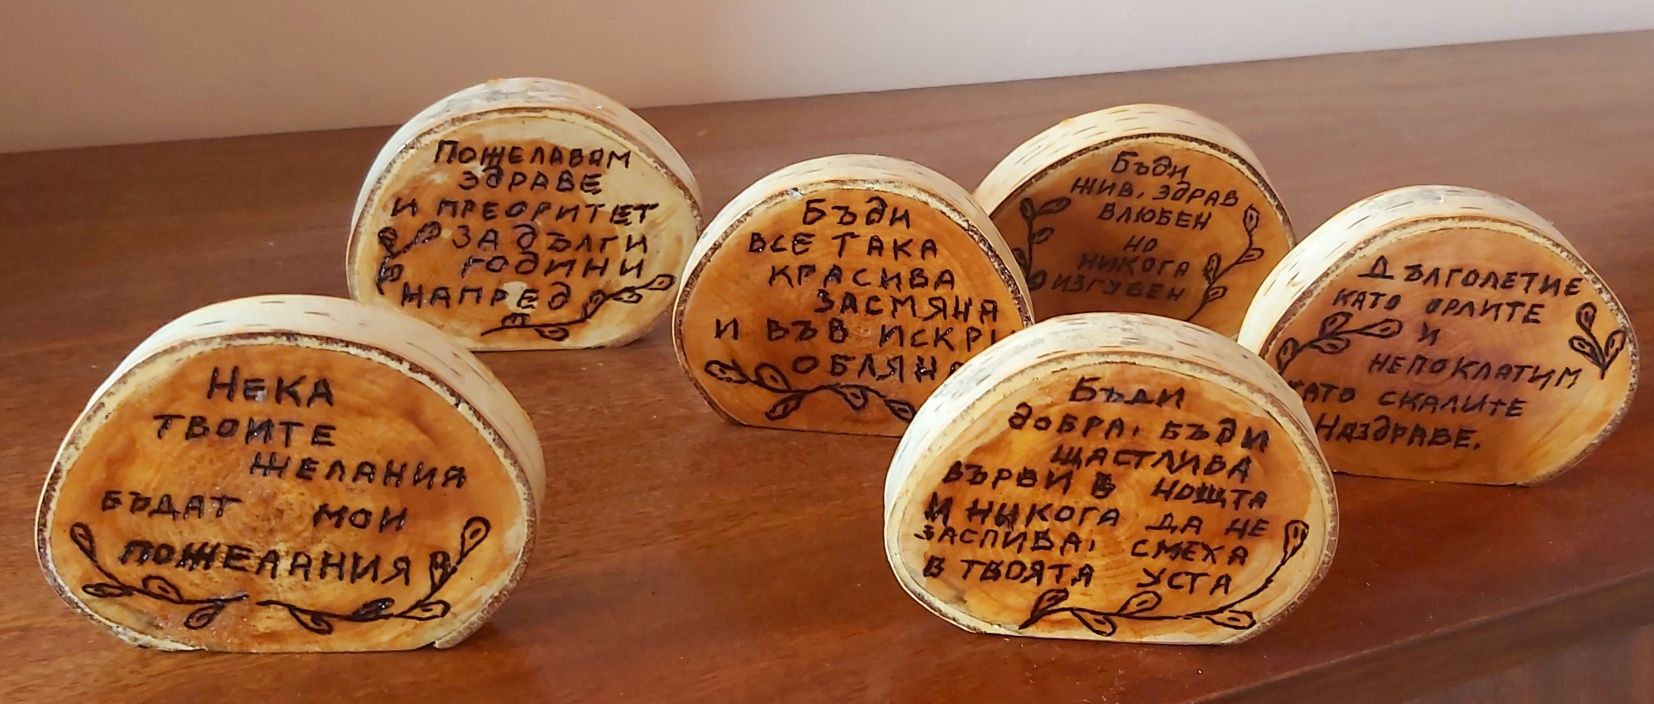 Пожелавам
здраве
и преоритет
за дълги
години
напред
Бъди
все така
красива
засмяна
и във
Бъди
жив, здрав
влюбен
но
никога
изгубен
Дълголетие
като орлите
и
непоклатим
като скалите
Наздраве.
Нека
твоите
желания
бъдат мои
пожелания
Бъди
добра, бъди
щастлива
върви в нощта
и никога да не
заспива, смеха
в твоята уста